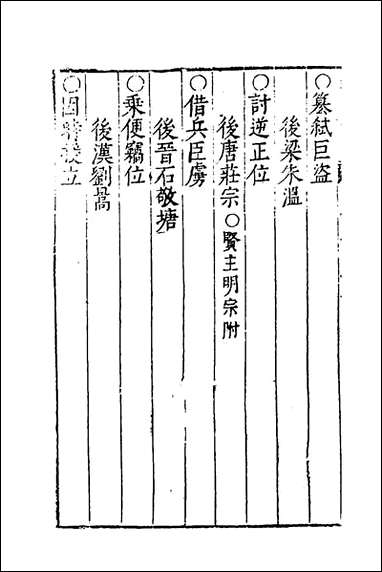 ○篡弑巨盜
後梁朱溫
○討逆正位
後唐莊宗○賢主明宗附
○借兵臣虜
後晉石敬塘
○乘便竊位
後漢劉暠
○因
立